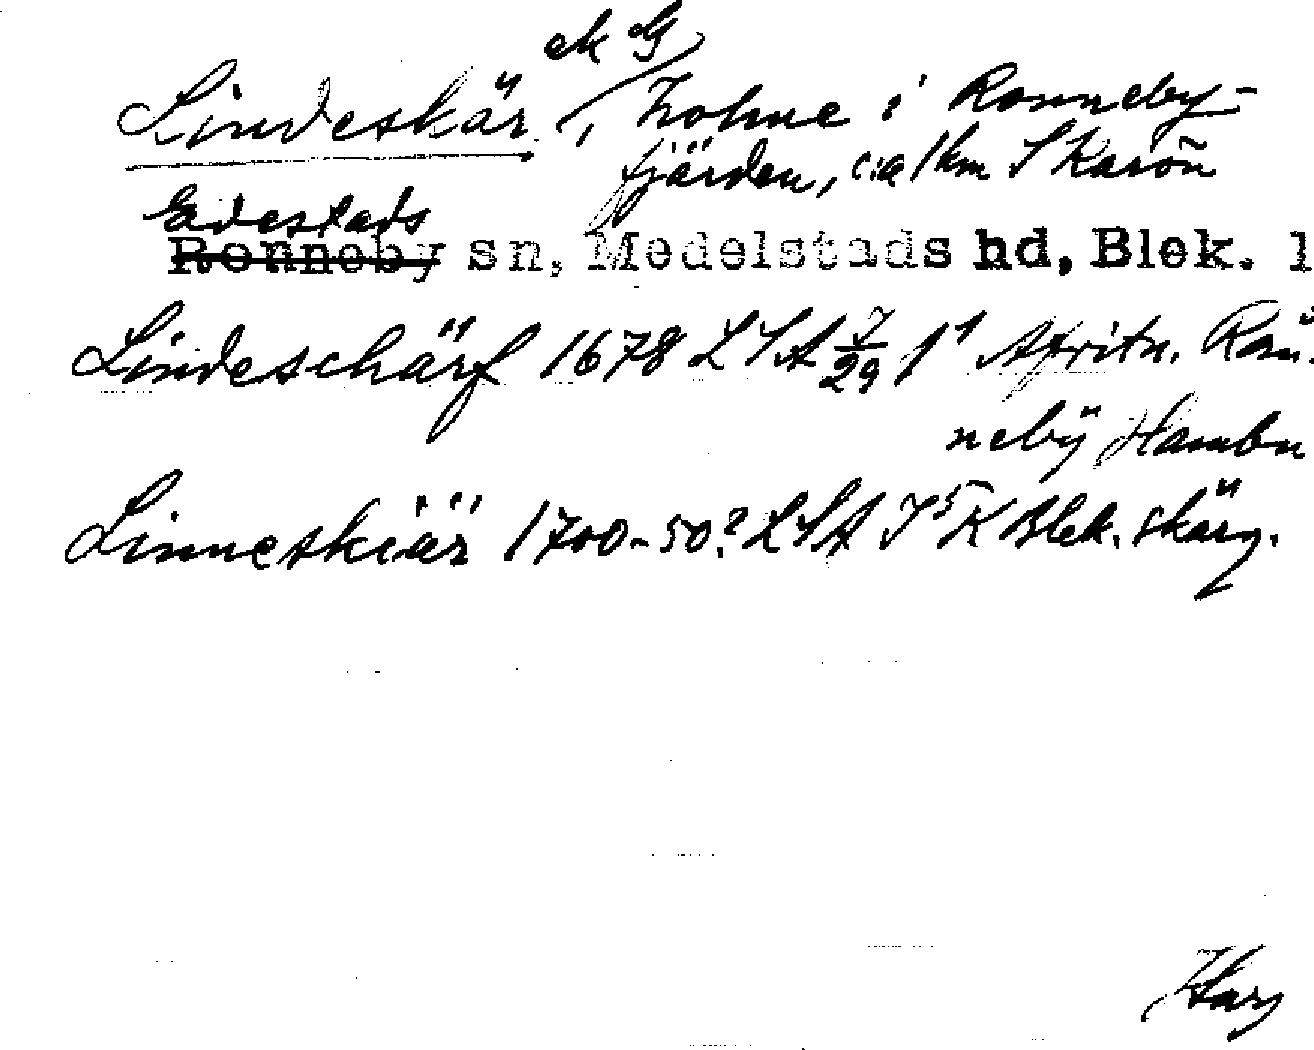 ek G
Lindeskär, holme i Ronneby-
fjärden, c:a 1 km S Karön
Edestads
Ronneby sn, Medelstads hd, Blek. l
Lindeschärf 1678 LSA 7/29 11 Afritn. Rön
nebÿ Hambn
Linneskiär 1700-50? LSA I 5 K Blek. skärg.